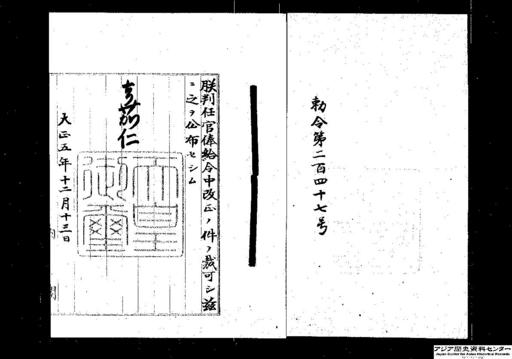 勅令第二百四十七号
朕判任官俸給令中改正ノ件ヲ裁可シ茲
ニ之ヲ公布セシム
嘉仁
天皇御璽
大正五年十二月十三日
内閣
アジア歴史資料センター
Japan Center for Asian Historical Records